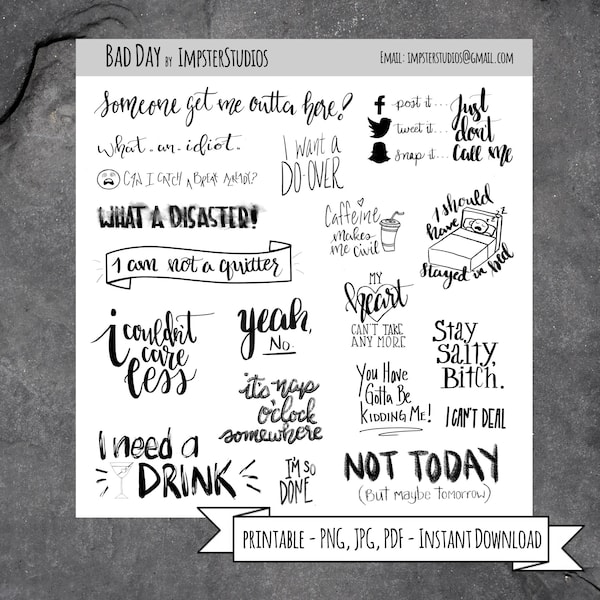 BAD DAY BY IMPSTERSTUDIOS
EMAIL: IMPSTERSTUDIOS@GMAIL.COM
Someone get me outta here!
what-an-idiot.
CAN I CATCH A BREAK ALREADY?
I want a
DO-OVER
post it...
tweet it...
snap it...
Just
don't
call me
WHAT A DISASTER!
I am not a quitter
Caffeine
makes
me civil
I should
have
stayed in bed
zzz
i couldn't
care
less
yeah,
No.
MY
heart
CAN'T TAKE
ANY MORE
Stay
Salty,
Bitch.
it's nap
o'clock
somewhere
You Have
Gotta Be
Kidding Me!
I CAN'T DEAL
I need a
DRINK
I'm so
DONE
NOT TODAY
(But maybe tomorrow)
PRINTABLE - PNG, JPG, PDF - INSTANT DOWNLOAD